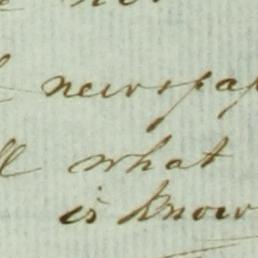 newspap
what
is know